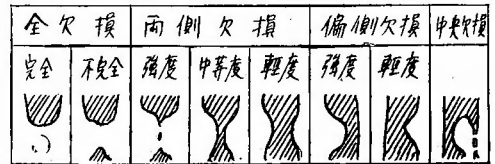 全欠損 両側欠損 偏側欠損 中央欠損
完全 不完全 強度 中等度 輕度 強度 輕度